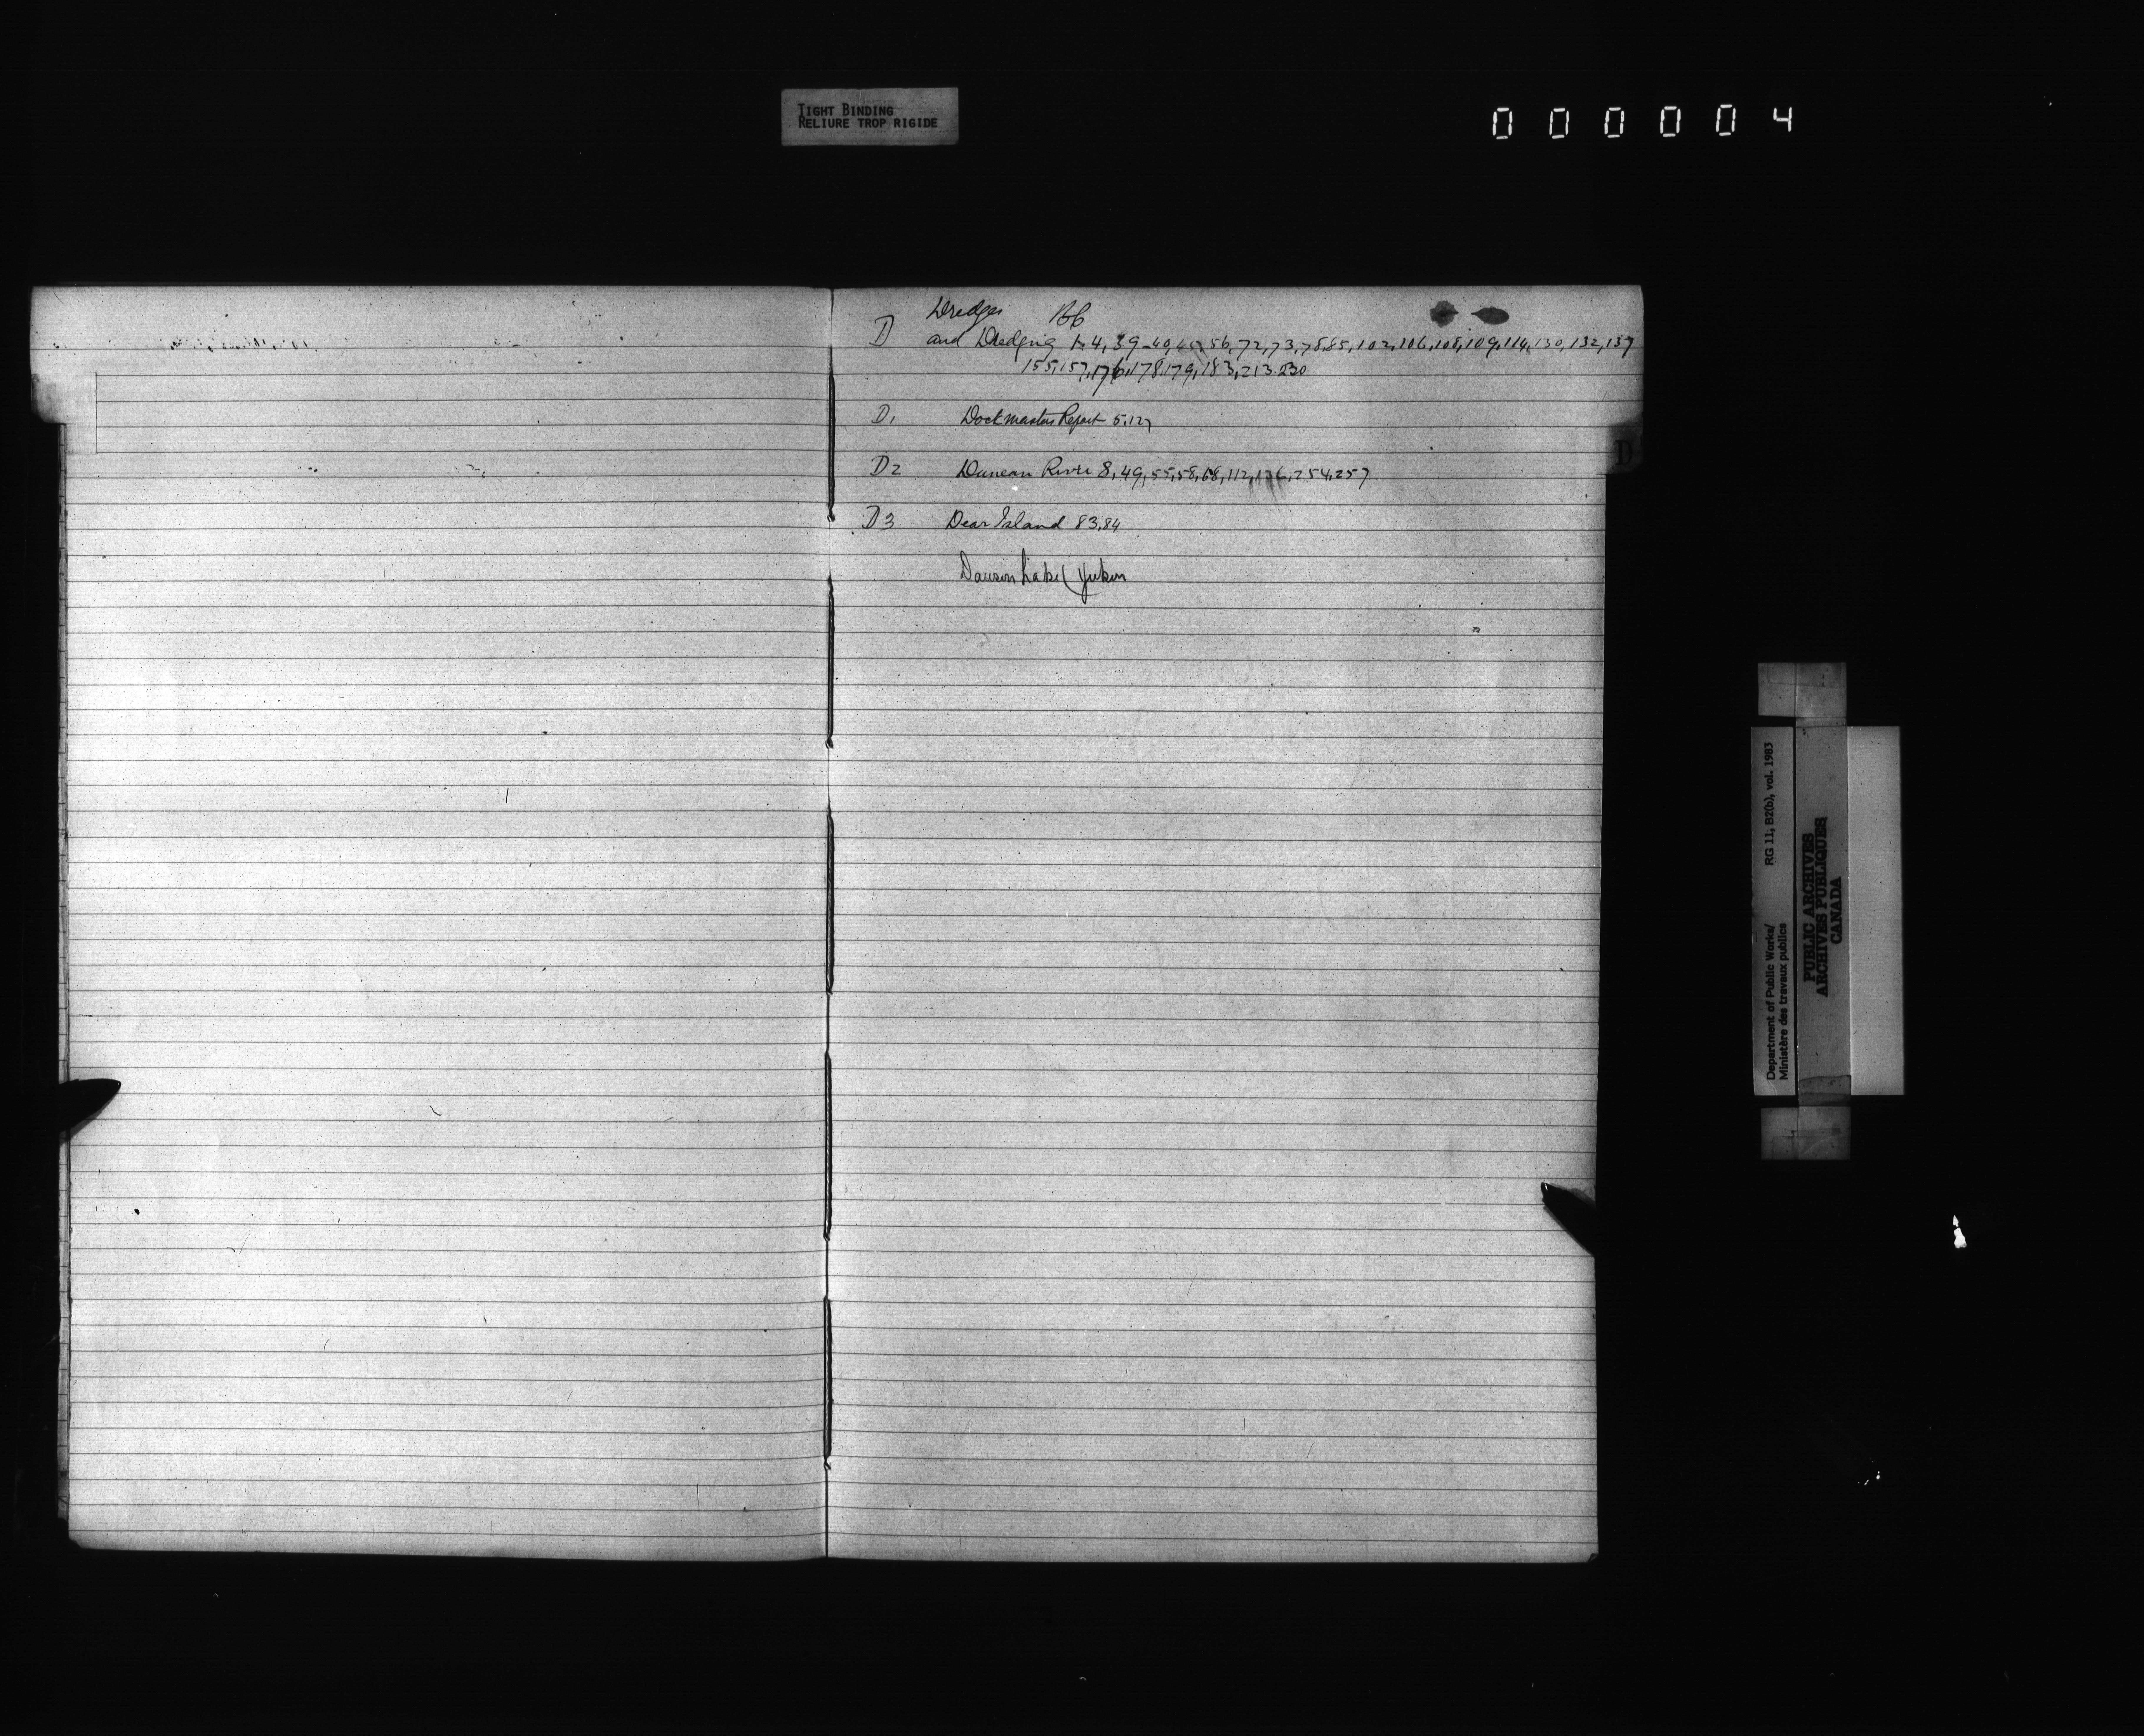 TIGHT BINDING
RELIURE TROP RIGIDE
000004
Dredges
D and Dredging 1-4, 39-40, 56, 72, 73, 78, 85, 102, 106, 108, 109, 114, 130, 132, 137
155, 157, 176, 178, 179, 183, 213, 230
D1 Dockmasters Report 5, 127
D2 Duncan River 8, 49, 55, 58, 68, 112, 254, 257
D3 Dear Island 83, 84
Dawson Yukon
D
Department of Public Works/ RG 11, B2(b), vol. 1983
Ministère des travaux publics
PUBLIC ARCHIVES
ARCHIVES PUBLIQUES
CANADA